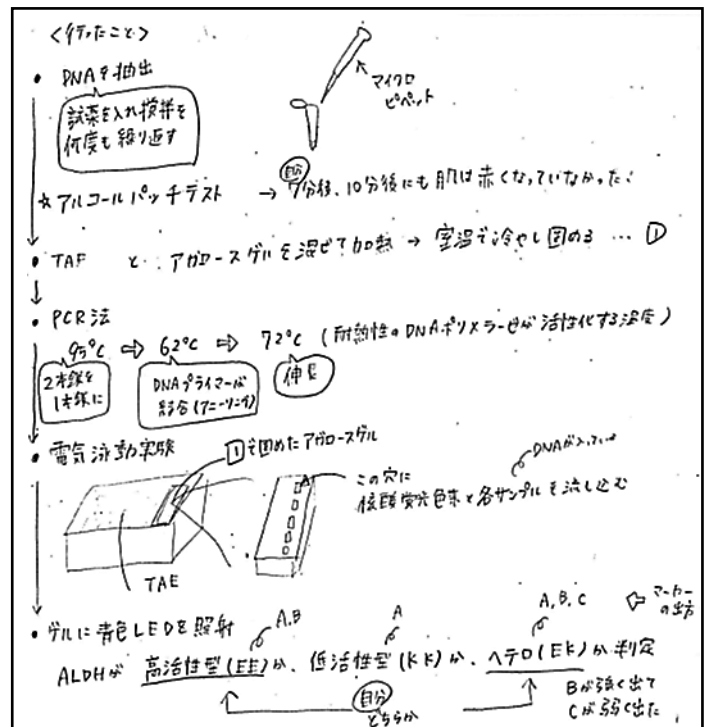 <行ったこと>
• DNAを抽出
試薬を入れ撹拌を
何度も繰り返す
マイクロ
ピペット
☆アルコールパッチテスト → 7分後、10分後にも肌は赤くなっていなかった!
自分
• TAE と アガロースゲルを混ぜて加熱 → 室温で冷やし固める … ①
• PCR法
95℃ ⇨ 62℃ ⇨ 72℃ (耐熱性のDNAポリメラーゼが活性化する温度)
2本鎖を
1本鎖に
DNAプライマーが
結合(アニーリング)
伸長
• 電気泳動実験
①で固めたアガロースゲル
TAE
DNAが入っている
この穴に
核酸蛍光色素と各サンプルを流し込む
• ゲルに青色LEDを照射
A,B
A
A,B,C
⇦ マーカー
の出方
ALDHが 高活性型(EE)か、低活性型(KK)か、ヘテロ(EK)か判定
自分
どちらか
Bが強く出て
Cが弱く出た